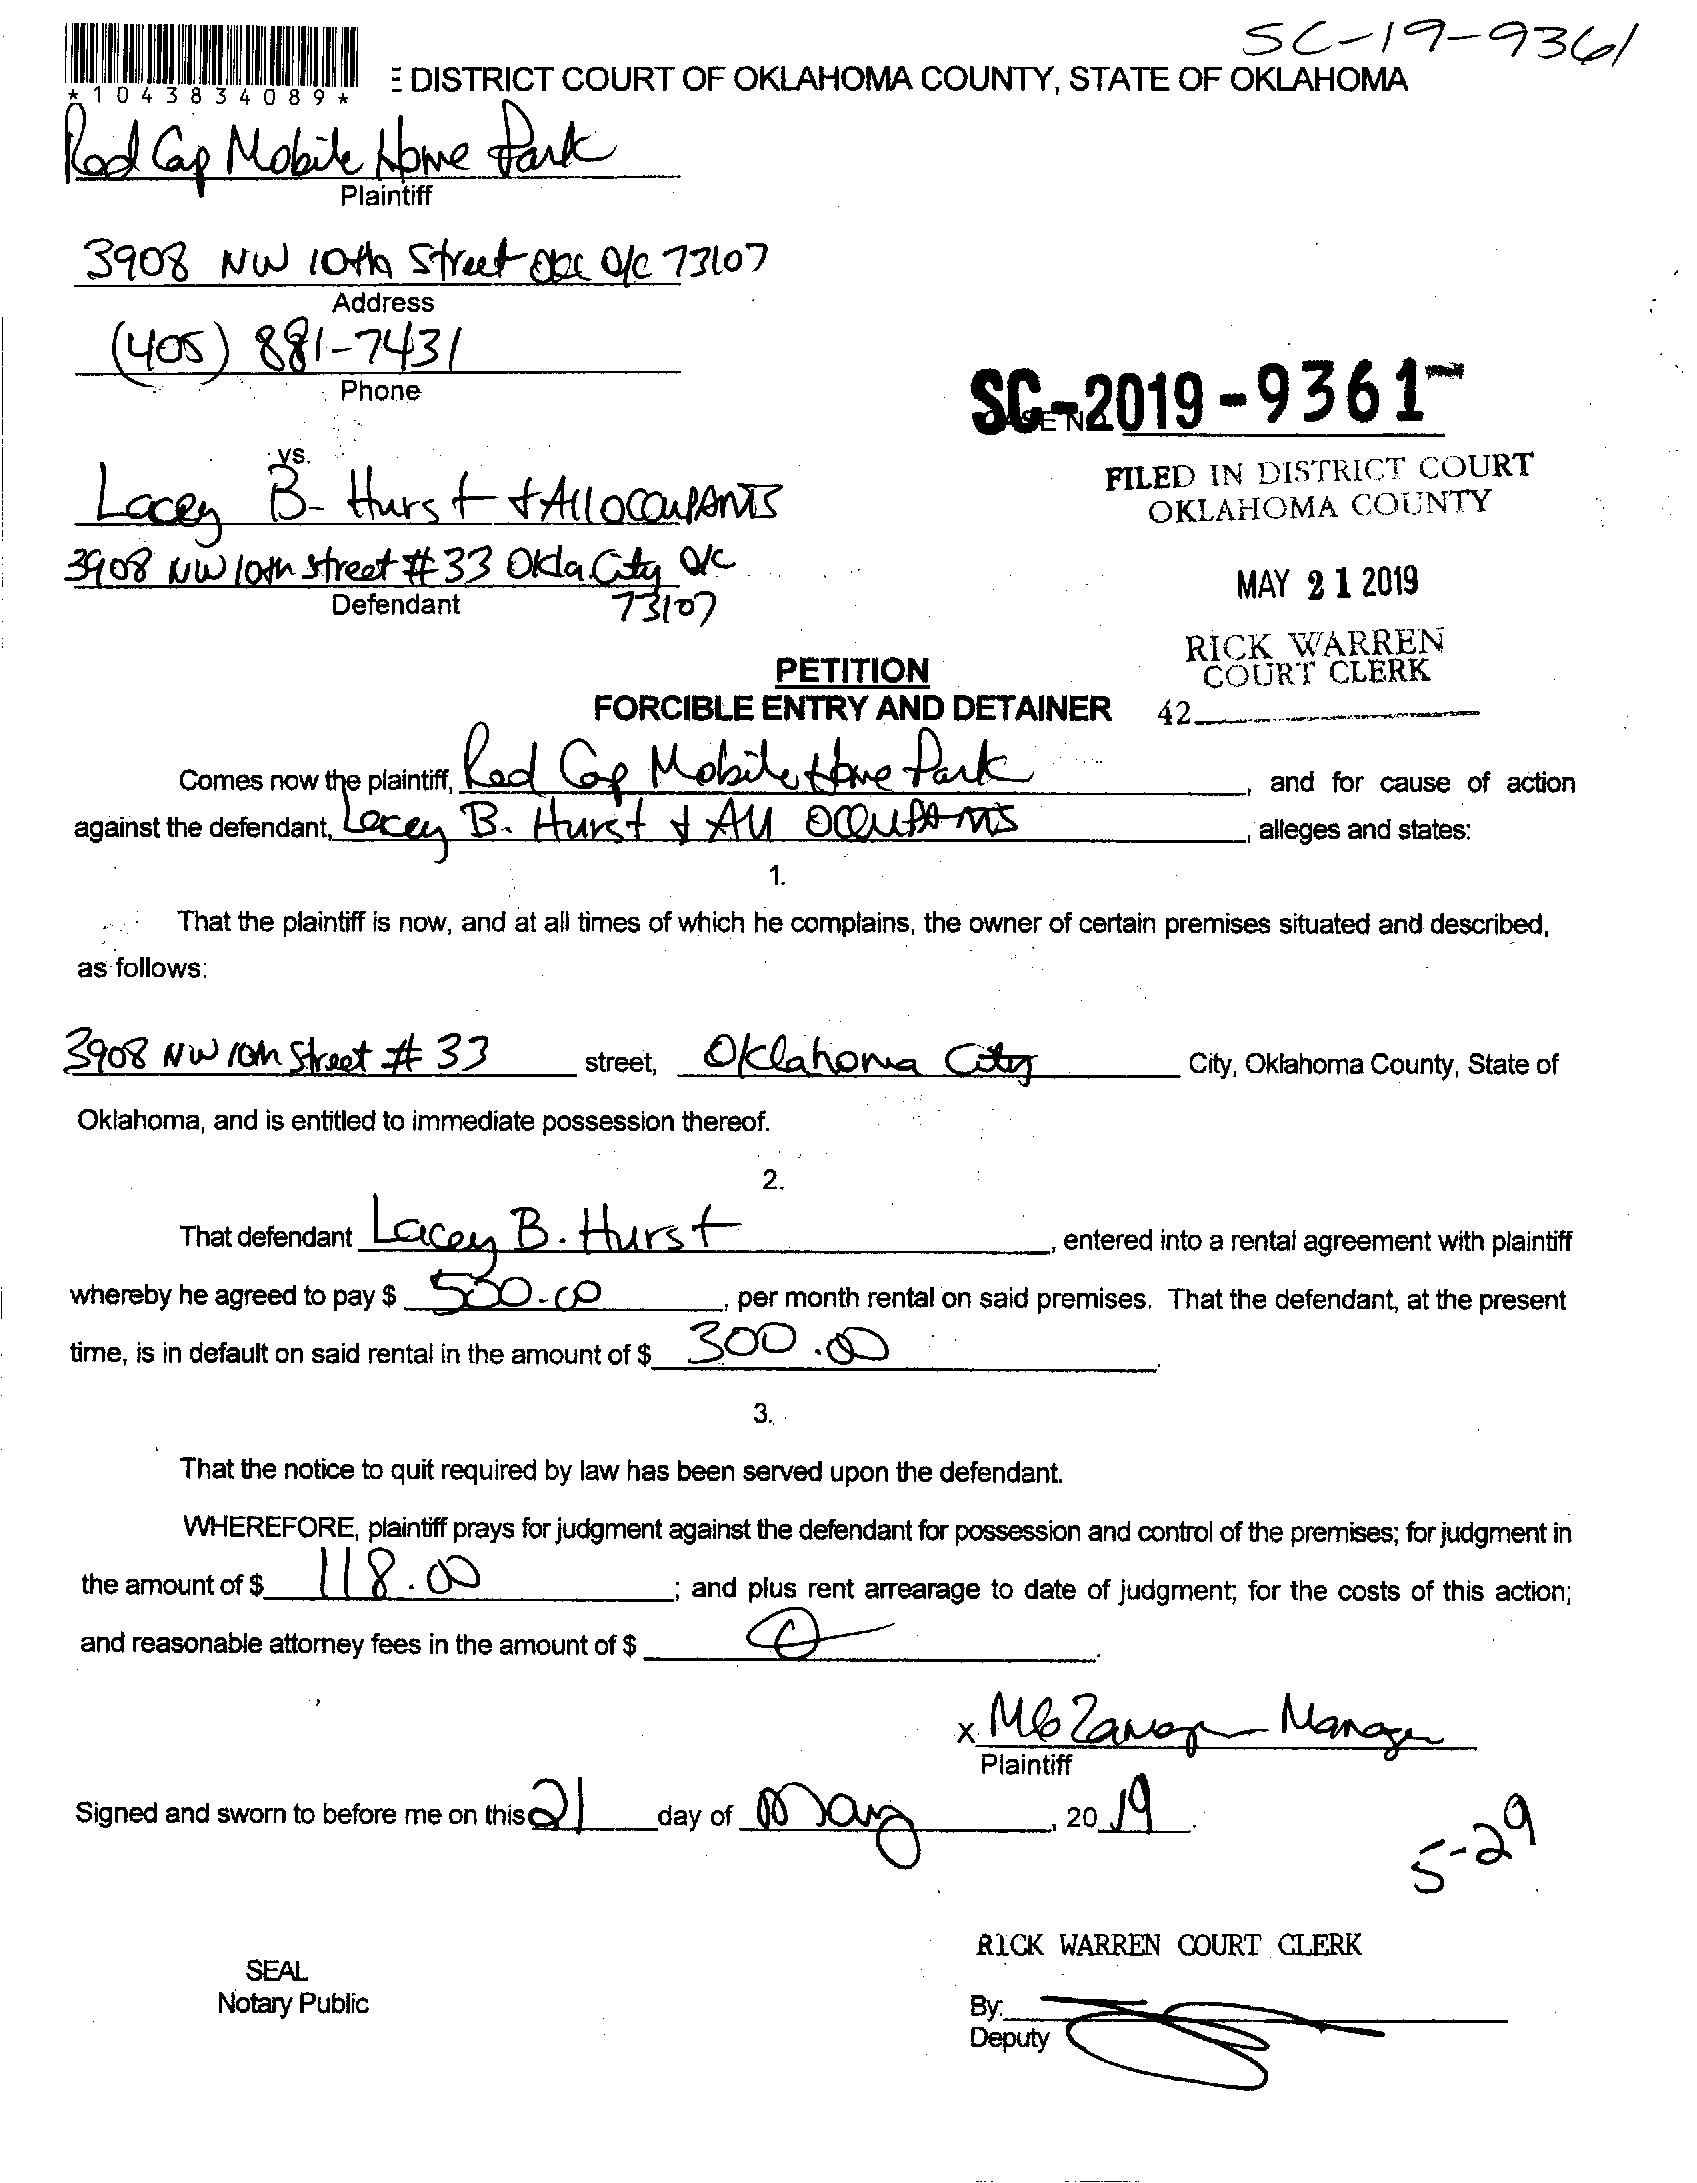 SC-19-9361
*1043834089*
E DISTRICT COURT OF OKLAHOMA COUNTY, STATE OF OKLAHOMA
Red Cap Mobile Home Park
Plaintiff
3908 NW 10th Street OKC OK 73107
Address
(405) 881-7431
Phone
SC-2019-9361
vs.
FILED IN DISTRICT COURT
OKLAHOMA COUNTY
Lacey B. Hurst + All occupants
3908 NW 10th street # 33 Okla. City OK
73107
Defendant
MAY 21 2019
RICK WARREN
COURT CLERK
42
PETITION
FORCIBLE ENTRY AND DETAINER
Comes now the plaintiff, Red Cap Mobile Home Park, and for cause of action
against the defendant, Lacey B. Hurst + All occupants, alleges and states:
1.
That the plaintiff is now, and at all times of which he complains, the owner of certain premises situated and described,
as follows:
3908 NW 10th Street # 33 street, Oklahoma City City, Oklahoma County, State of
Oklahoma, and is entitled to immediate possession thereof.
2.
That defendant Lacey B. Hurst, entered into a rental agreement with plaintiff
whereby he agreed to pay $ 500.00, per month rental on said premises. That the defendant, at the present
time, is in default on said rental in the amount of $ 300.00.
3.
That the notice to quit required by law has been served upon the defendant.
WHEREFORE, plaintiff prays for judgment against the defendant for possession and control of the premises; for judgment in
the amount of $ 118.00; and plus rent arrearage to date of judgment; for the costs of this action;
and reasonable attorney fees in the amount of $
x Manager
Plaintiff
Signed and sworn to before me on this 21 day of May, 2019.
5-29
RICK WARREN COURT CLERK
SEAL
Notary Public
By:
Deputy